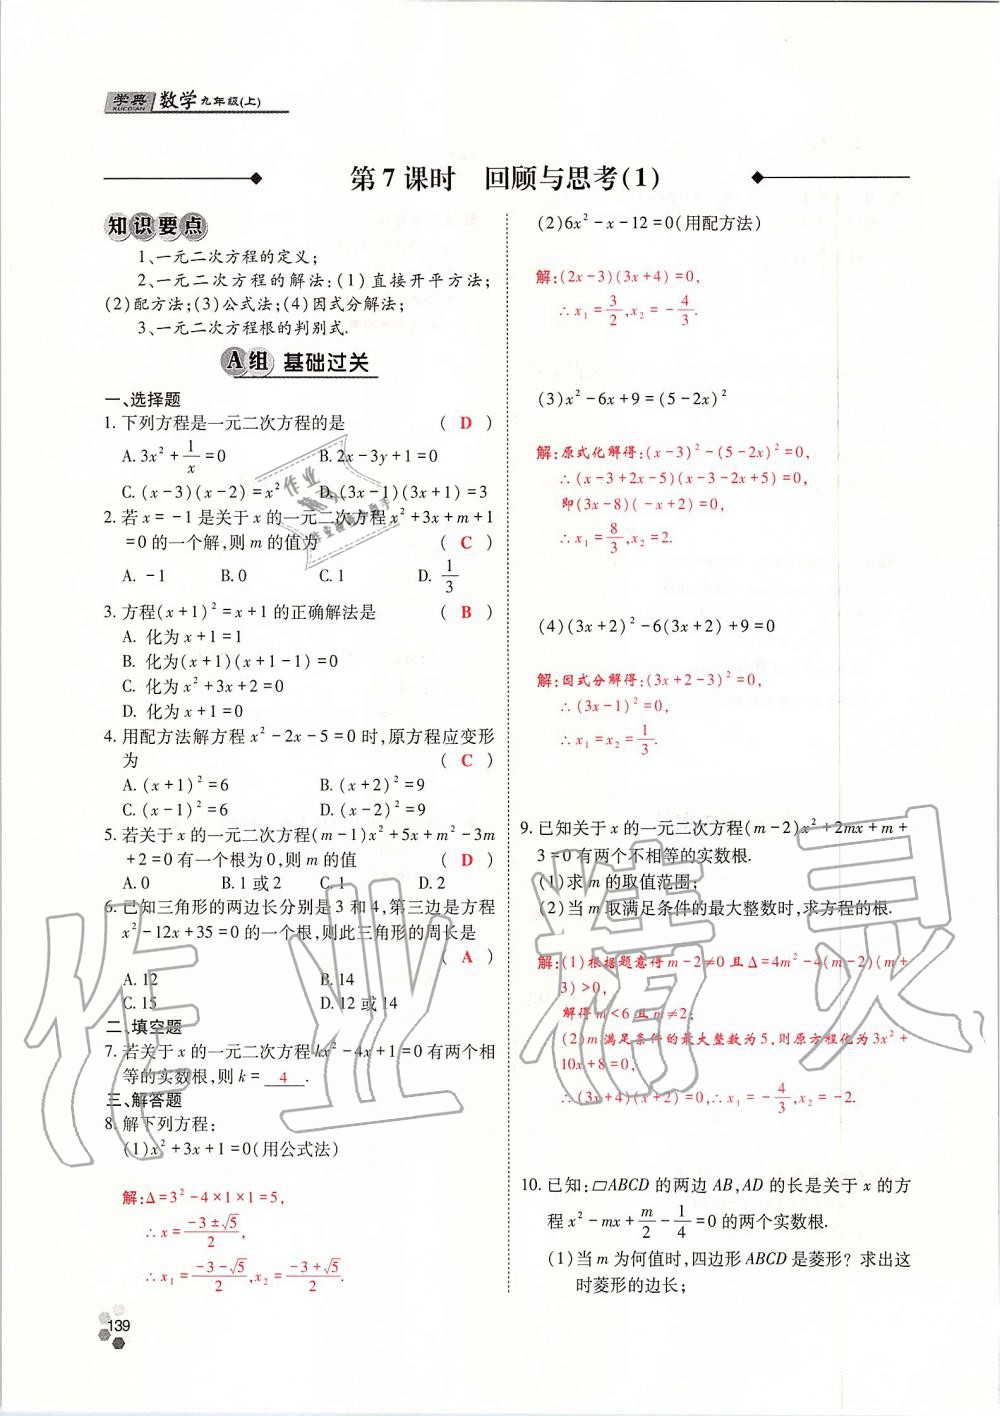 学典 数学 九年级(上)
XUEDIAN
第 7 课时　回顾与思考(1)
知识要点
1、一元二次方程的定义;
2、一元二次方程的解法:(1)直接开平方法;
(2)配方法;(3)公式法;(4)因式分解法;
3、一元二次方程根的判别式.
A组 基础过关
一、选择题
1. 下列方程是一元二次方程的是 ( D )
A. 3x²+1/x=0 B. 2x-3y+1=0
C. (x-3)(x-2)=x² D. (3x-1)(3x+1)=3
2. 若 x=-1 是关于 x 的一元二次方程 x²+3x+m+1
=0 的一个解,则 m 的值为 ( C )
A. -1 B. 0 C. 1 D. 1/3
3. 方程(x+1)²=x+1 的正确解法是 ( B )
A. 化为 x+1=1
B. 化为(x+1)(x+1-1)=0
C. 化为 x²+3x+2=0
D. 化为 x+1=0
4. 用配方法解方程 x²-2x-5=0 时,原方程应变形
为 ( C )
A. (x+1)²=6 B. (x+2)²=9
C. (x-1)²=6 D. (x-2)²=9
5. 若关于 x 的一元二次方程(m-1)x²+5x+m²-3m
+2=0 有一个根为 0,则 m 的值 ( D )
A. 0 B. 1 或 2 C. 1 D. 2
6. 已知三角形的两边长分别是 3 和 4,第三边是方程
x²-12x+35=0 的一个根,则此三角形的周长是
( A )
A. 12 B. 14
C. 15 D. 12 或 14
二、填空题
7. 若关于 x 的一元二次方程 kx²-4x+1=0 有两个相
等的实数根,则 k= 4 .
三、解答题
8. 解下列方程:
(1)x²+3x+1=0(用公式法)
解:Δ=3²-4×1×1=5,
∴x=(-3±√5)/2,
∴x₁=(-3-√5)/2,x₂=(-3+√5)/2.
139
(2)6x²-x-12=0(用配方法)
解:(2x-3)(3x+4)=0,
∴x₁=3/2,x₂=-4/3.
(3)x²-6x+9=(5-2x)²
解:原式化解得:(x-3)²-(5-2x)²=0,
∴(x-3+2x-5)(x-3-2x+5)=0,
即(3x-8)(-x+2)=0,
∴x₁=8/3,x₂=2.
(4)(3x+2)²-6(3x+2)+9=0
解:因式分解得:(3x+2-3)²=0,
∴(3x-1)²=0,
∴x₁=x₂=1/3.
9. 已知关于 x 的一元二次方程(m-2)x²+2mx+m+
3=0 有两个不相等的实数根.
(1)求 m 的取值范围;
(2)当 m 取满足条件的最大整数时,求方程的根.
解:(1)根据题意得 m-2≠0 且 Δ=4m²-4(m-2)(m+
3)>0,
解得 m<6 且 m≠2;
(2)m 满足条件的最大整数为 5,则原方程化为 3x²+
10x+8=0,
∴(3x+4)(x+2)=0,∴x₁=-4/3,x₂=-2.
10. 已知:▱ABCD 的两边 AB,AD 的长是关于 x 的方
程 x²-mx+m/2-1/4=0 的两个实数根.
(1)当 m 为何值时,四边形 ABCD 是菱形? 求出这
时菱形的边长;
作业精灵